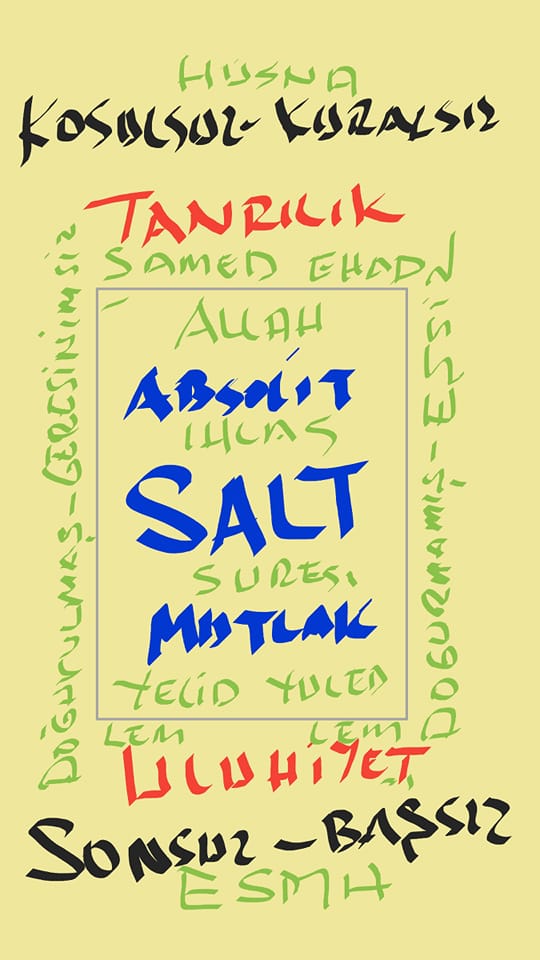 HÜSNA
KOŞULSUZ-KURALSIZ
TANRILIK
SAMED EHADÜN
ALLAH
ABSOLİT
IHLAS
SALT
SURESi
MUTLAK
YELiD YULED
LEM LEM
ULUHiYET
SONSUZ-BAŞSIZ
ESMA
DOĞURULMAŞ-GERESİNİMSİZ
DOĞURMAMIŞ-EŞSİZ